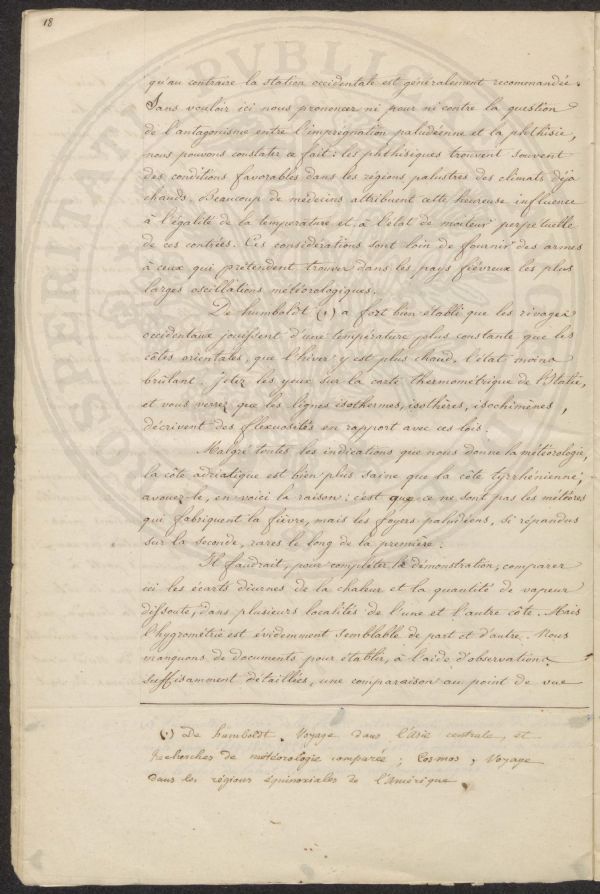 18
qu'au contraire la station occidentale est généralement recommandée.
Sans vouloir ici nous prononcer ni pour ni contre la question
de l'antagonisme entre l'imprégnation paludéenne et la phthisie,
nous pouvons constater ce fait: les phthisiques trouvent souvent
des conditions favorables dans les régions palustres des climats déjà
chauds. Beaucoup de médecins attribuent cette heureuse influence
à l'égalité de la température et à l'état de moiteur perpetuelle
de ces contrées. Ces considérations sont loin de fournir des armes
à ceux qui prétendent trouver dans les pays fiévreux les plus
larges oscillations météorologiques.
De humboldt (1) a fort bien établi que les rivages
occidentaux jouissent d'une température plus constante que les
côtes orientales, que l'hiver y est plus chaud, l'été moins
brûlant. Jetez les yeux sur la carte thermométrique de l'Italie,
et vous verrez que les lignes isothermes, isothères, isochimènes,
décrivent des flexuosités en rapport avec ces lois.
Malgré toutes les indications que nous donne la météorologie,
la côte adriatique est bien plus saine que la côte tyrrhénienne;
avouez-le, en voici la raison: c'est que ce ne sont pas les météores
qui fabriquent la fièvre, mais les foyers paludéens, si répandus
sur la seconde, rares le long de la première.
Il faudrait, pour compléter la démonstration, comparer
ici les écarts diurnes de la chaleur et la quantité de vapeur
dissoute, dans plusieurs localités de l'une et l'autre côte. Mais
l'hygrométrie est évidemment semblable de part et d'autre. Nous
manquons de documents pour établir, à l'aide d'observations
suffisamment détaillées, une comparaison au point de vue
(1) De humboldt. Voyage dans l'Asie centrale, et
Recherches de météorologie comparée; Cosmos, Voyage
dans les régions équinoxiales de l'Amérique.
PVBLI